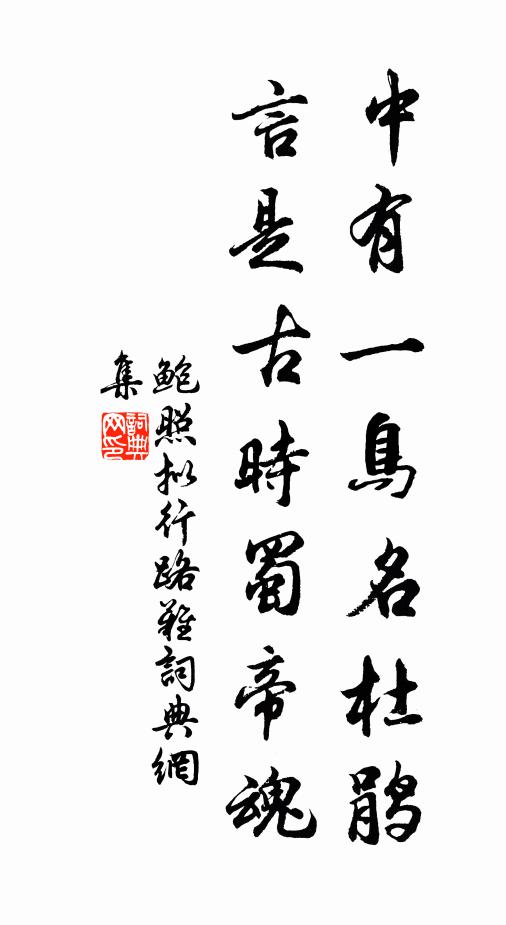 中有一鳥名杜鹃
言是古時蜀帝魂
鲍照拟行路難詞典網
集
詞典
网印